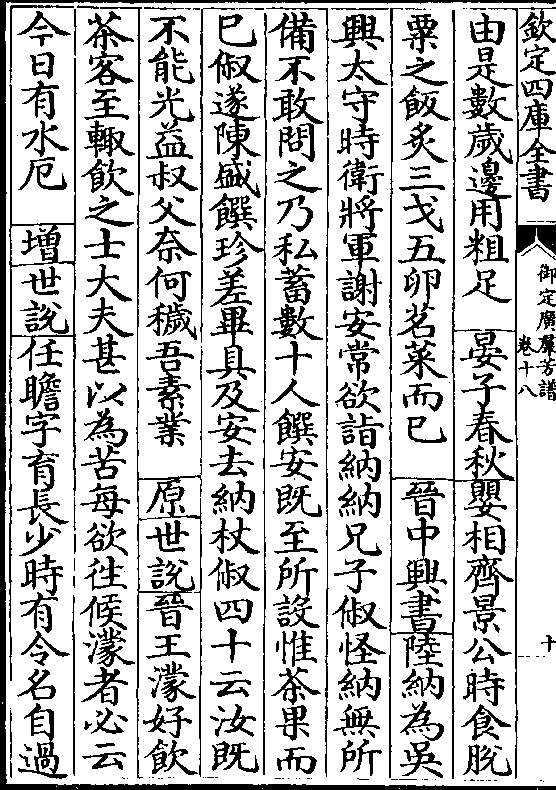 欽定四庫全書
御定廣羣芳譜
卷十八
十
由是數歲邊用粗足 晏子春秋 嬰相齊景公時食脫
粟之飯炙三戈五卵茗菜而已 晉中興書 陸納為吳
興太守時衛將軍謝安常欲詣納納兄子俶怪納無所
備不敢問之乃私蓄數十人饌安既至所設惟茶果而
已俶遂陳盛饌珍羞畢具及安去納杖俶四十云汝既
不能光益叔父奈何穢吾素業 原 世說 晉王濛好飲
茶客至輒飲之士大夫甚以為苦每欲往候濛者必云
今日有水厄 增 世說 任瞻字育長少時有令名自過